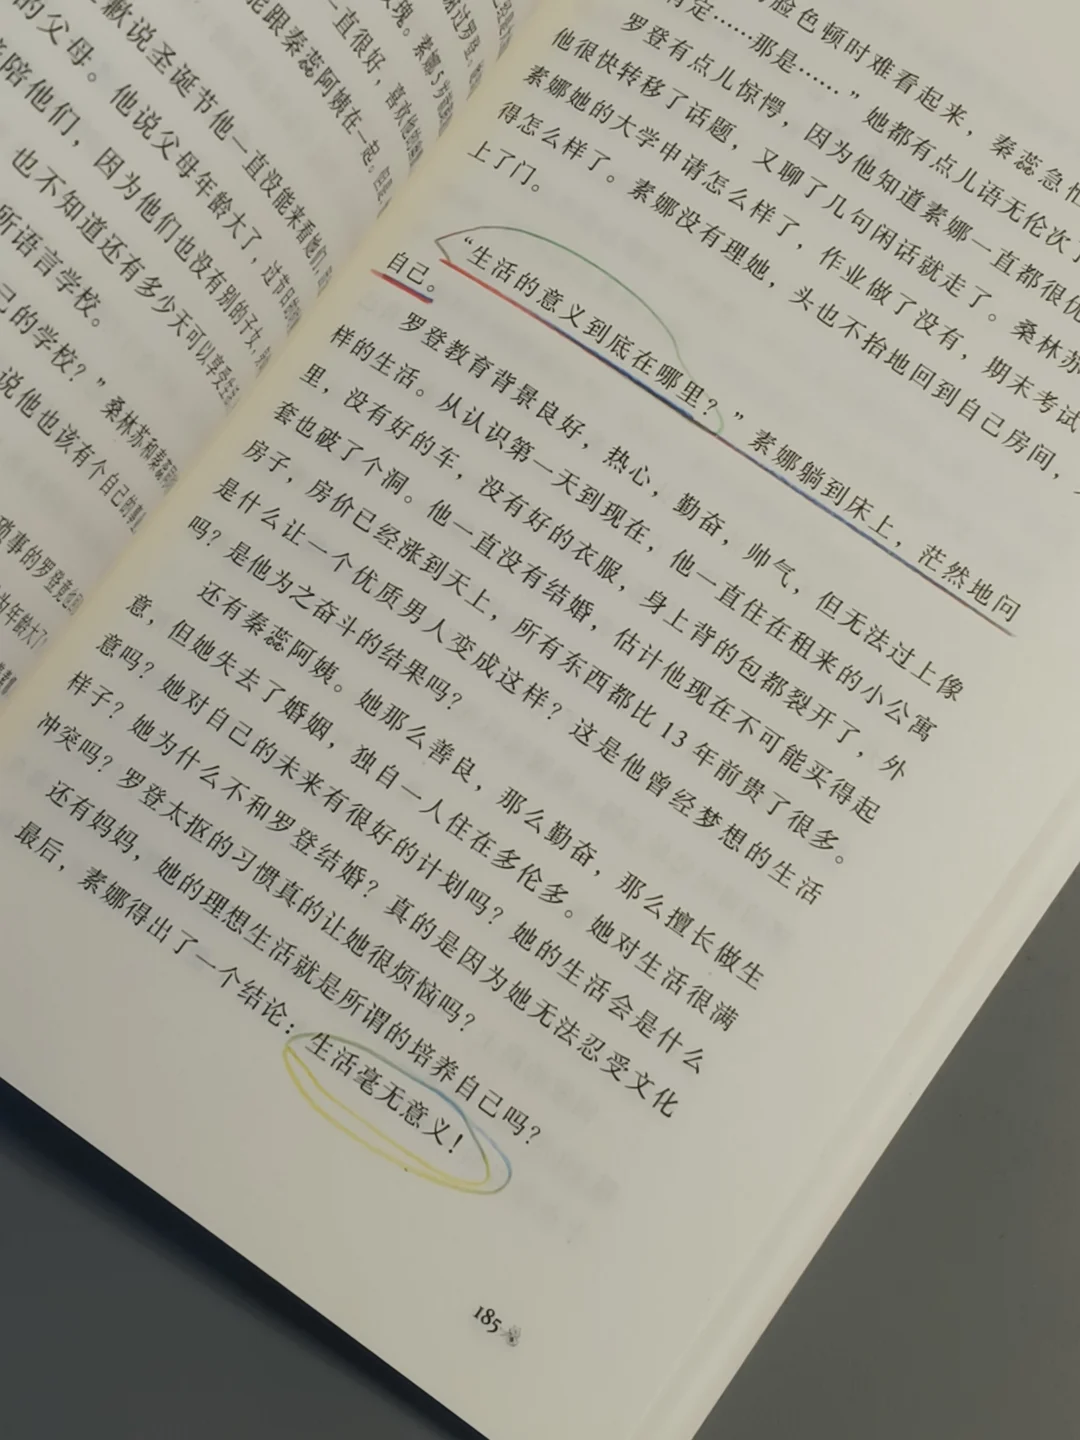 玫瑰。素娜5岁
一直很好，喜欢他的
能跟秦蕊阿姨在一起。
歉说圣诞节他一直没能来看她们，
的父母。他说父母年龄大了，过节日的
陪他们，因为他们也没有别的子女，
也不知道还有多少天可以享受生活
所语言学校。
己的学校？”桑林苏和秦蕊
说他也该有个自己的事
琐事的罗登竟也
为年龄大了
脸色顿时难看起来，秦蕊急忙
肯定……那是……”她都有点儿语无伦次了
罗登有点儿惊愕，因为他知道素娜一直都很优
他很快转移了话题，又聊了几句闲话就走了。桑林苏
素娜她的大学申请怎么样了，作业做了没有，期末考试
得怎么样了。素娜没有理她，头也不抬地回到自己房间，
上了门。
“生活的意义到底在哪里？”素娜躺到床上，茫然地问
自己。
罗登教育背景良好，热心，勤奋，帅气，但无法过上像
样的生活。从认识第一天到现在，他一直住在租来的小公寓
里，没有好的车，没有好的衣服，身上背的包都裂开了，外
套也破了个洞。他一直没有结婚，估计他现在不可能买得起
房子，房价已经涨到天上，所有东西都比13年前贵了很多。
是什么让一个优质男人变成这样？这是他曾经梦想的生活
吗？是他为之奋斗的结果吗？
还有秦蕊阿姨。她那么善良，那么勤奋，那么擅长做生
意，但她失去了婚姻，独自一人住在多伦多。她对生活很满
意吗？她对自己的未来有很好的计划吗？她的生活会是什么
样子？她为什么不和罗登结婚？真的是因为她无法忍受文化
冲突吗？罗登太抠的习惯真的让她很烦恼吗？
还有妈妈，她的理想生活就是所谓的培养自己吗？
最后，素娜得出了一个结论：生活毫无意义！
185